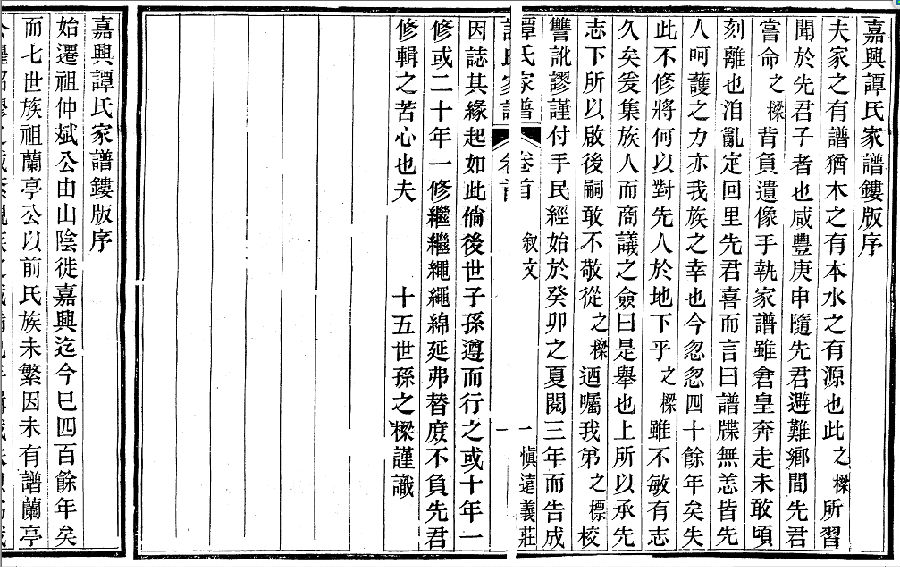 嘉興譚氏家譜鏤版序
夫家之有譜猶木之有本水之有源也此之樑所習
聞於先君子者也咸豐庚申隨先君避難鄉間先君
嘗命之樑背負遺像手執家譜雖倉皇奔走未敢頃
刻離也洎亂定回里先君喜而言曰譜牒無恙皆先
人呵護之力亦我族之幸也今忽忽四十餘年矣失
此不修將何以對先人於地下乎之樑雖不敏有志
久矣爰集族人而商議之僉曰是舉也上所以承先
志下所以啟後嗣敢不敬從之樑迺囑我弟之標校
讐訛謬謹付手民經始於癸卯之夏閱三年而告成
譚氏家譜 卷首 叙文 一 愼遠義莊
因誌其緣起如此倘後世子孫遵而行之或十年一
修或二十年一修繼繼繩繩綿延弗替庶不負先君
修輯之苦心也夫 十五世孫之樑謹識
嘉興譚氏家譜鏤版序
始遷祖仲斌公由山陰徙嘉興迄今已四百餘年矣
而七世族祖蘭亭公以前氏族未繁因未有譜蘭亭